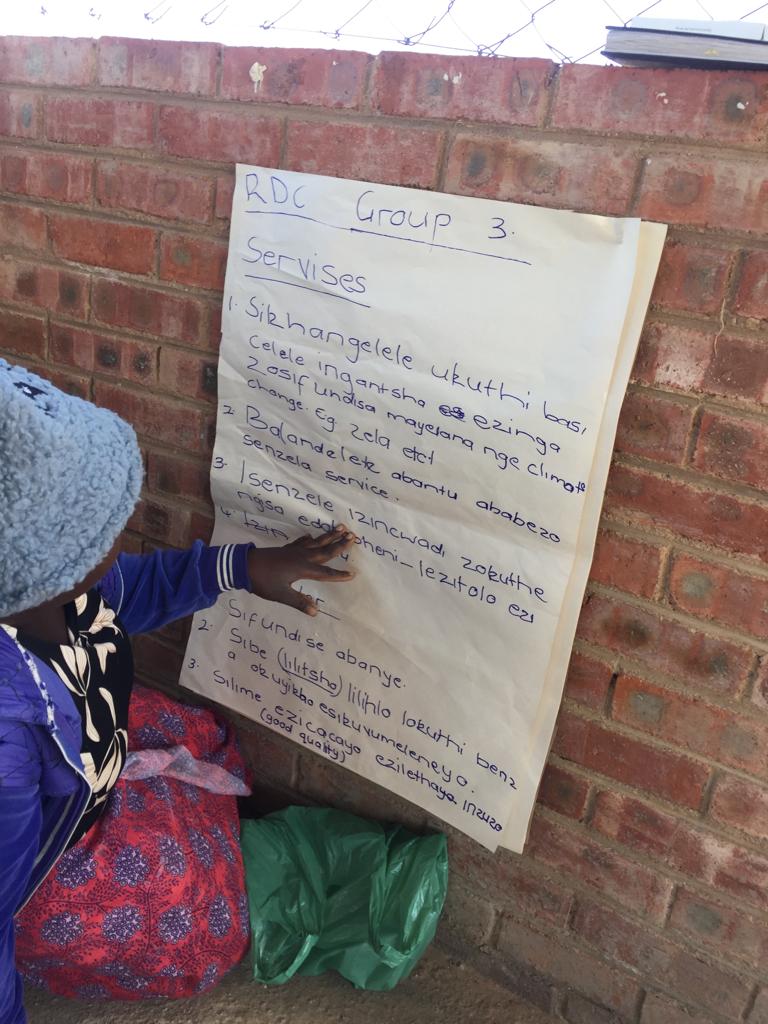 RDC Group 3.
Servises
1. Sikhangelele ukuthi basi
celele ingantsha ezinga
zosifundisa mayelana nge climate
change. Eg. Zela etct
2. Balandelele abantu ababezo
senzela service.
3. Isenzele izincwadi zokuthe
ngisa lezitolo ezi
4. Izin
Sifundise abanye.
2. Sibe (lilitsho) lilihlo lokuthi benz
a okuyikho esikuvumeleneyo.
3. Silime ezicacayo ezilethaya inzuzo
(good quality)